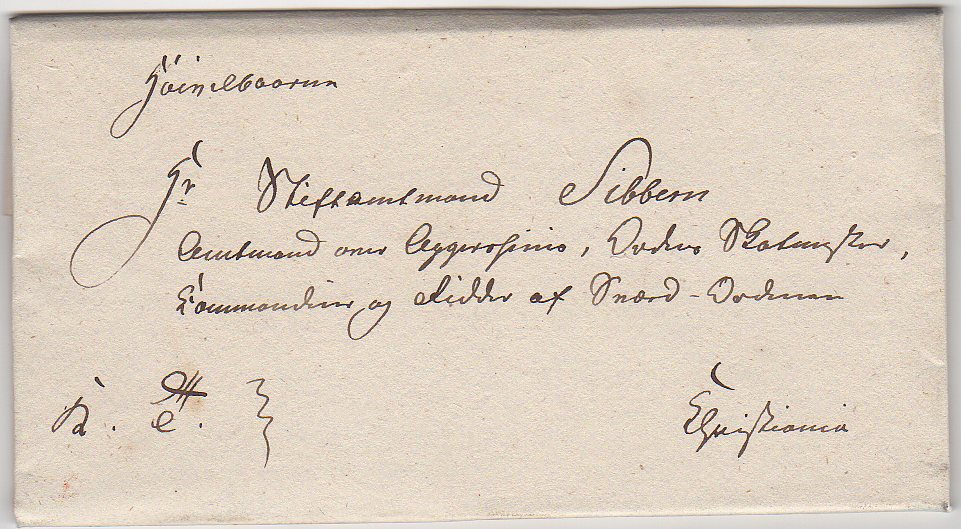 Höivelbaarne
Hr Stiftamtmand Sibbern
Amtmand over Aggershuus, Ordens Skatmester,
Kommandeur og Ridder af Sværd-Ordenen
K. T.
Christiania